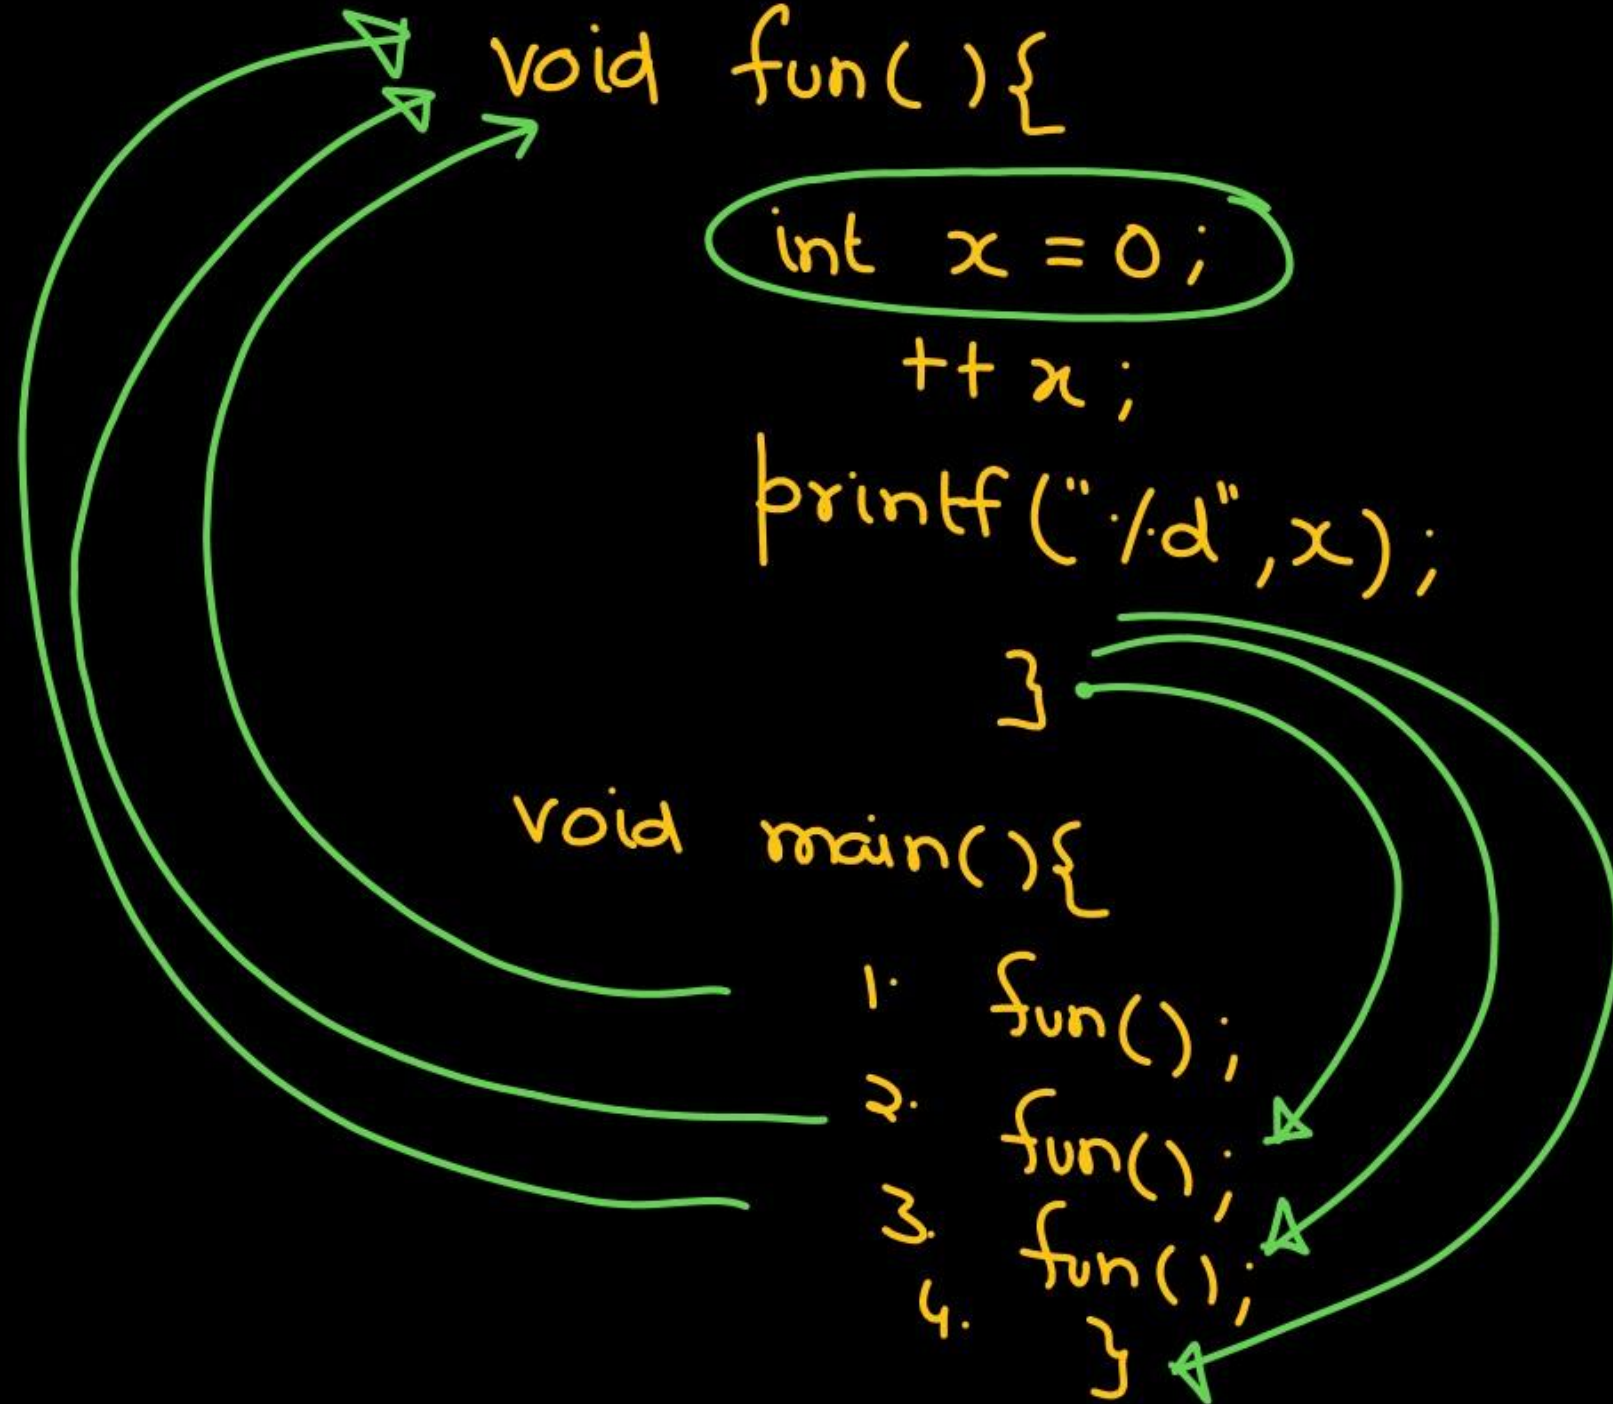 void fun( ){
int x = 0 ;
++ x ;
printf("%d",x);
}
void main(){
1. fun();
2. fun();
3. fun();
4. }